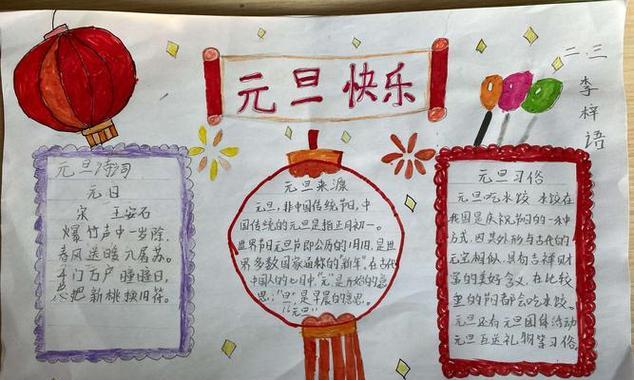 元旦快乐
二.三
李梓语
元旦诗词
元日
宋 王安石
爆竹声中一岁除,
春风送暖入屠苏。
千门万户曈曈日,
总把新桃换旧符。
元旦来源
元旦,非中国传统节日,中
国传统的元旦是指正月初一。
世界节日元旦节即公历的1月1日,是世
界多数国家通称的"新年",在古代
中国人的七日中,"元"是开始的意
思;"旦",是早晨的意思。
"元旦"
元旦习俗
元旦吃水饺 水饺在
我国是庆祝节日的一种
方式,因其外形与古代的
元宝相似,具有吉祥财
富的美好含义,在比较
重的节日都会吃水饺。
元旦还有元旦团体活动
元旦互送礼物等习俗。